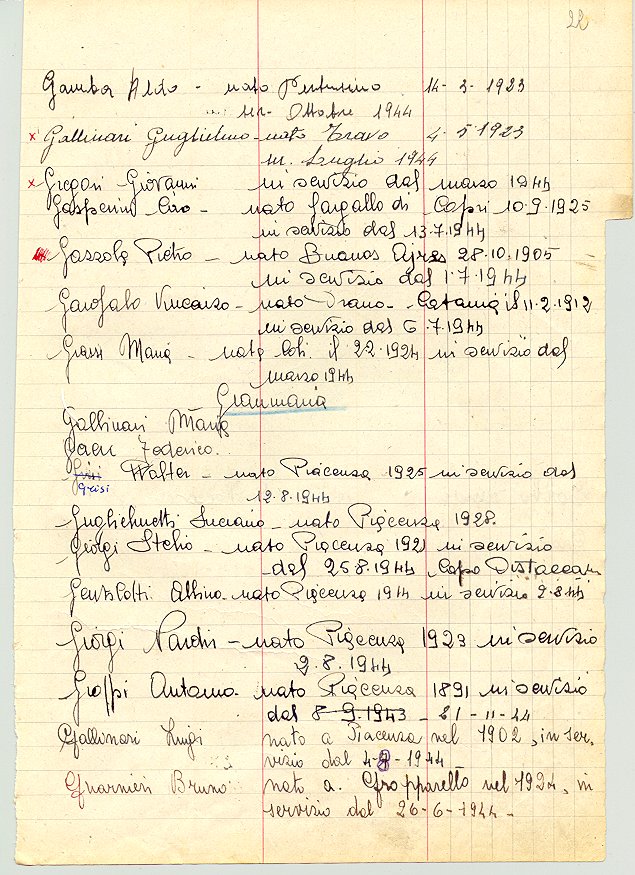 22
Gamba Aldo - nato 14-3-1923
ser- Ottobre 1944
x Gallinari Guglielmo - nato Travo 4-5-1923
in. Luglio 1944
x Gregori Giovanni in servizio dal marzo 1944
Gasperini Ciro - nato Gargallo di Capri 10.9.1925
in servizio dal 13.7.1944
Gazzola Pietro - nato Buenos Ajres 28.10.1905
in servizio dal 1.7.1944
Garofalo Vincenzo - nato - Catania il 11.2.1912
in servizio dal 6.7.1944
Grassi Maria - nata Coli il 22.1924 in servizio dal
marzo 1944
Gallinari Maria
Federico.
Walter - nato Piacenza 1925 in servizio dal
Grisi
12.8.1944
Guglielmetti Luciano - nato Piacenza 1928.
Giorgi Stelio - nato Piacenza 192 in servizio
dal 25.8.1944 Capo
Albino - nato Piacenza 1914 in servizio 2.8.44
Giorgi - nato Piacenza 1923 in servizio
2.8.1944
Groppi Antonio - nato Piacenza 1891 in servizio
dal 8-9.1943 - 21-11-44
Gallinari Luigi nato a Piacenza nel 1902, in ser-
vizio dal 1944
Guarnieri Bruno nato a. Gropparello nel 1924, in
servizio dal 26-6-1944 -